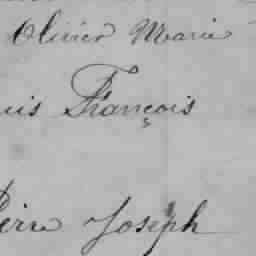 Olivier Marie
uis François
Pierre Joseph